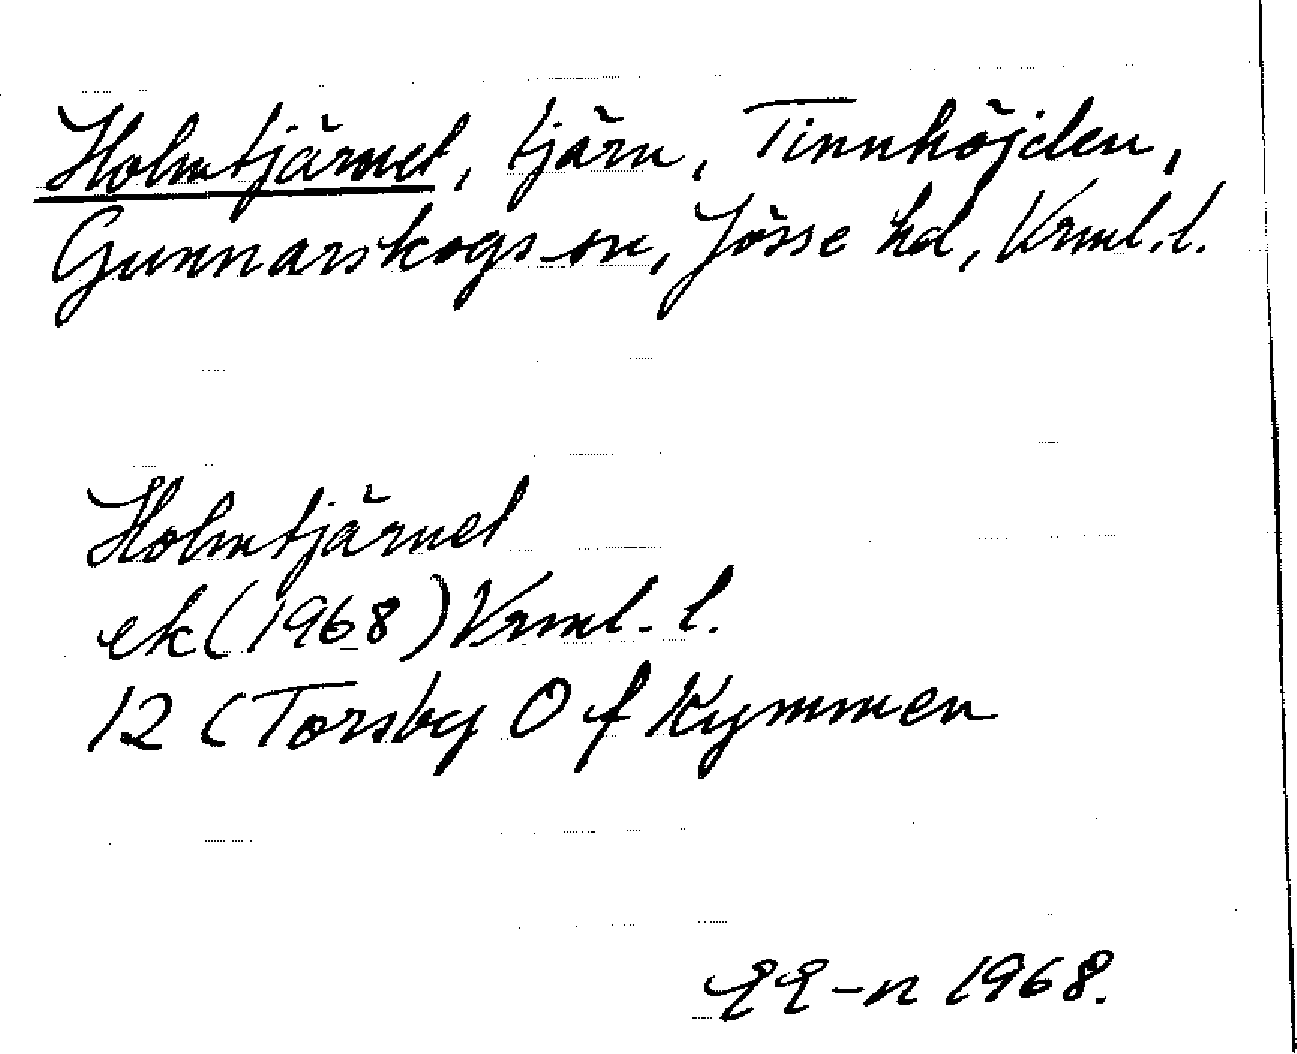 Holmtjärnet, tjärn, Tinnhöjden,
Gunnarskogs sn, Jösse hd, Vrml. l.
Holmtjärnet
ek (1968) Vrml. l.
12 C Torsby O f Kymmen
1968.